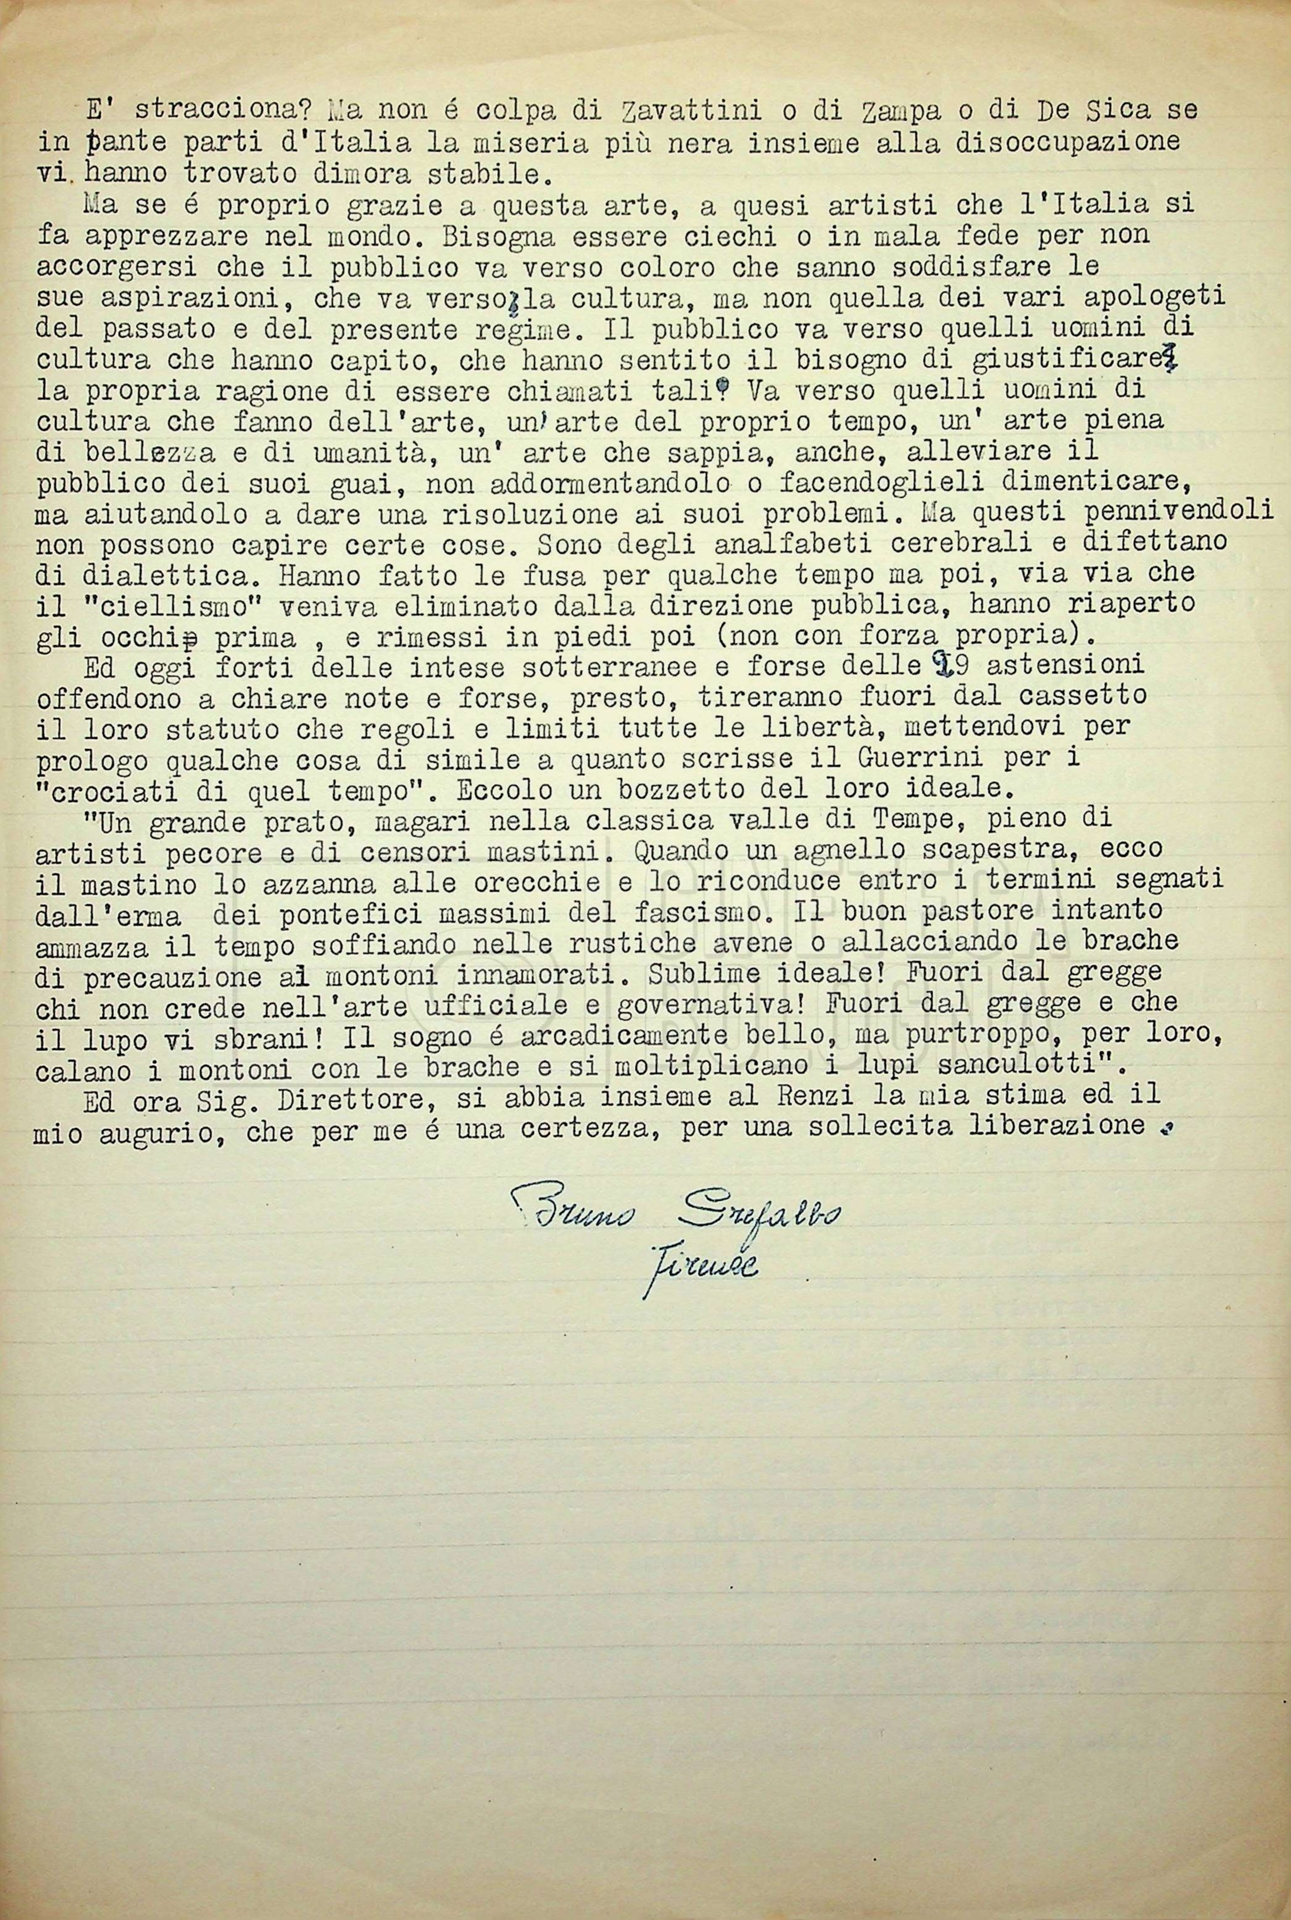 E' stracciona? Ma non é colpa di Zavattini o di Zampa o di De Sica se
in tante parti d'Italia la miseria più nera insieme alla disoccupazione
vi. hanno trovato dimora stabile.
Ma se é proprio grazie a questa arte, a quesi artisti che l'Italia si
fa apprezzare nel mondo. Bisogna essere ciechi o in mala fede per non
accorgersi che il pubblico va verso coloro che sanno soddisfare le
sue aspirazioni, che va verso la cultura, ma non quella dei vari apologeti
del passato e del presente regime. Il pubblico va verso quelli uomini di
cultura che hanno capito, che hanno sentito il bisogno di giustificare
la propria ragione di essere chiamati tali? Va verso quelli uomini di
cultura che fanno dell'arte, un'arte del proprio tempo, un' arte piena
di bellezza e di umanità, un' arte che sappia, anche, alleviare il
pubblico dei suoi guai, non addormentandolo o facendoglieli dimenticare,
ma aiutandolo a dare una risoluzione ai suoi problemi. Ma questi pennivendoli
non possono capire certe cose. Sono degli analfabeti cerebrali e difettano
di dialettica. Hanno fatto le fusa per qualche tempo ma poi, via via che
il "ciellismo" veniva eliminato dalla direzione pubblica, hanno riaperto
gli occhi prima , e rimessi in piedi poi (non con forza propria).
Ed oggi forti delle intese sotterranee e forse delle 19 astensioni
offendono a chiare note e forse, presto, tireranno fuori dal cassetto
il loro statuto che regoli e limiti tutte le libertà, mettendovi per
prologo qualche cosa di simile a quanto scrisse il Guerrini per i
"crociati di quel tempo". Eccolo un bozzetto del loro ideale.
"Un grande prato, magari nella classica valle di Tempe, pieno di
artisti pecore e di censori mastini. Quando un agnello scapestra, ecco
il mastino lo azzanna alle orecchie e lo riconduce entro i termini segnati
dall'erma dei pontefici massimi del fascismo. Il buon pastore intanto
ammazza il tempo soffiando nelle rustiche avene o allacciando le brache
di precauzione ai montoni innamorati. Sublime ideale! Fuori dal gregge
chi non crede nell'arte ufficiale e governativa! Fuori dal gregge e che
il lupo vi sbrani! Il sogno é arcadicamente bello, ma purtroppo, per loro,
calano i montoni con le brache e si moltiplicano i lupi sanculotti".
Ed ora Sig. Direttore, si abbia insieme al Renzi la mia stima ed il
mio augurio, che per me é una certezza, per una sollecita liberazione .
Bruno Grefalbo
Firenze